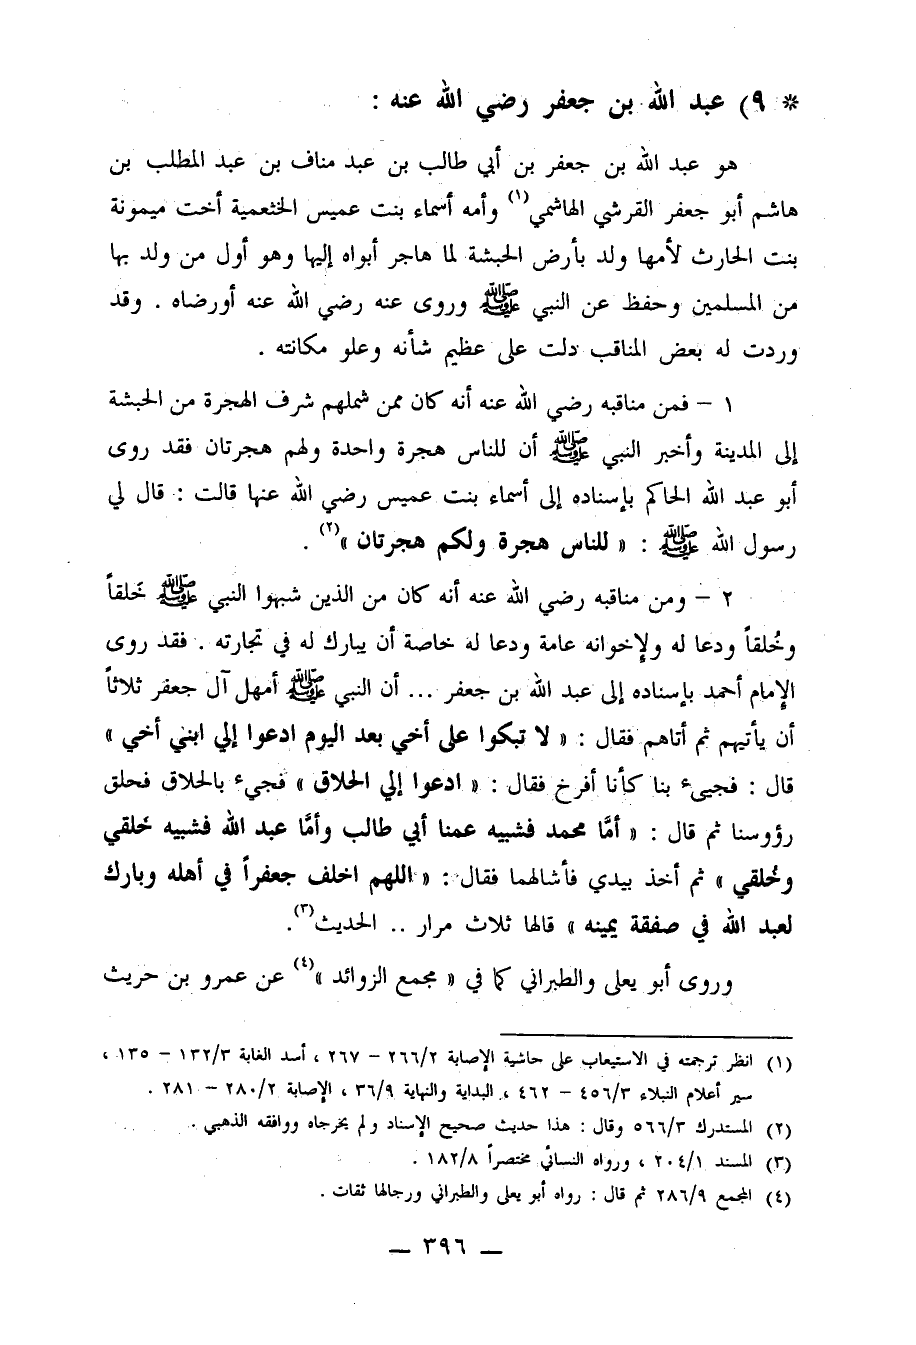 * ٩) عبد الله بن جعفر رضي الله عنه :
هو عبد الله بن جعفر بن أبي طالب بن عبد مناف بن عبد المطلب بن
هاشم أبو جعفر القرشي الهاشمي(١) وأمه أسماء بنت عميس الخثعمية أخت ميمونة
بنت الحارث لأمها ولد بأرض الحبشة لما هاجر أبواه إليها وهو أول من ولد بها
من المسلمين وحفظ عن النبي ﷺ وروى عنه رضي الله عنه أورضاه . وقد
وردت له بعض المناقب دلت على عظيم شأنه وعلو مكانته .
١ – فمن مناقبه رضي الله عنه أنه كان ممن شملهم شرف الهجرة من الحبشة
إلى المدينة وأخبر النبي ﷺ أن للناس هجرة واحدة ولهم هجرتان فقد روى
أبو عبد الله الحاكم بإسناده إلى أسماء بنت عميس رضي الله عنها قالت : قال لي
رسول الله ﷺ : « للناس هجرة ولكم هجرتان »(٢) .
٢ – ومن مناقبه رضي الله عنه أنه كان من الذين شبهوا النبي ﷺ خَلقاً
وخُلقاً ودعا له ولإخوانه عامة ودعا له خاصة أن يبارك له في تجارته . فقد روى
الإمام أحمد بإسناده إلى عبد الله بن جعفر ... أن النبي ﷺ أمهل آل جعفر ثلاثاً
أن يأتيهم ثم أتاهم فقال : « لا تبكوا على أخي بعد اليوم ادعوا إلي ابني أخي »
قال : فجيىء بنا كأنا أفرخ فقال : « ادعوا إلي الحلاق » فجيء بالحلاق فحلق
رؤوسنا ثم قال : « أمَّا محمد فشبيه عمنا أبي طالب وأمَّا عبد الله فشبيه خَلقي
وخُلقي » ثم أخذ بيدي فأشالهما فقال : « اللهم اخلف جعفراً في أهله وبارك
لعبد الله في صفقة يمينه » قالها ثلاث مرار .. الحديث(٣).
وروى أبو يعلى والطبراني كما في « مجمع الزوائد »(٤) عن عمرو بن حريث
(١) انظر ترجمته في الاستيعاب على حاشية الإصابة ٢٦٦/٢ – ٢٦٧ ، أسد الغابة ١٣٢/٣ – ١٣٥ ،
سير أعلام النبلاء ٤٥٦/٣ – ٤٦٢ ، البداية والنهاية ٣٦/٩ ، الإصابة ٢٨٠/٢ – ٢٨١ .
(٢) المستدرك ٥٦٦/٣ وقال : هذا حديث صحيح الإسناد ولم يخرجاه ووافقه الذهبي .
(٣) المسند ٢٠٤/١ ، ورواه النسائي مختصراً ١٨٢/٨ .
(٤) المجمع ٢٨٦/٩ ثم قال : رواه أبو يعلى والطبراني ورجالها ثقات .
— ٣٩٦ —